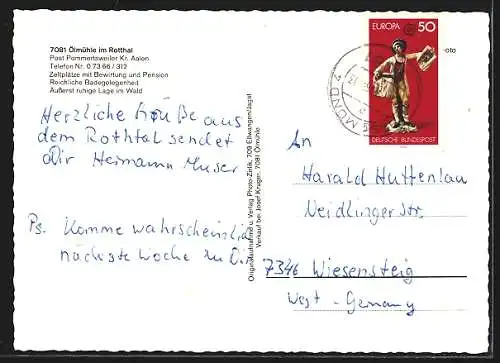 7081 Ölmühle im Rotthal
Post Pommertsweiler Kr. Aalen
Telefon Nr. 0 73 66 / 312
Zeltplätze mit Bewirtung und Pension
Reichliche Badegelegenheit
Äußerst ruhige Lage im Wald
Herzliche Grüße aus
dem Rothtal sendet
Dir Hermann Muser
Ps. Komme wahrscheinlich
nächste Woche zu Dir
Originalaufnahme u. Verlag Photo-Zirlik, 709 Ellwangen/Jagst
Verkauf bei Josef Kruger, 7081 Ölmühle
EUROPA 50
DEUTSCHE BUNDESPOST
oto
MÜND
An
Harald Huttenlau
Neidlinger Str.
7346 Wiesensteig
West-Germany